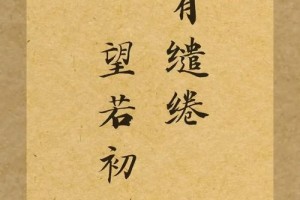 有缱绻
望若初